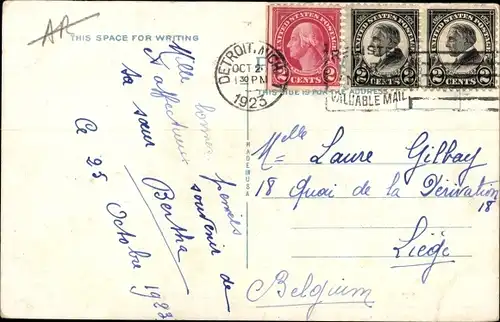 AR
THIS SPACE FOR WRITING
Mille bonnes pensées
& affectueux souvenir de
ta sœur Bertha
Ce 25 Octobre 1923
MADE IN USA
DETROIT, MICH.
OCT 2
1 30 PM
1923
REGIST
VALUABLE MAIL
UNITED STATES POSTAGE
2 CENTS 2
UNITED STATES POSTAGE
2 CENTS 2
UNITED STATES POSTAGE
2 CENTS 2
THIS SIDE IS FOR THE ADDRESS
Melle Laure Gilbay
18 Quai de la Dérivation
18
Liège
Belgium